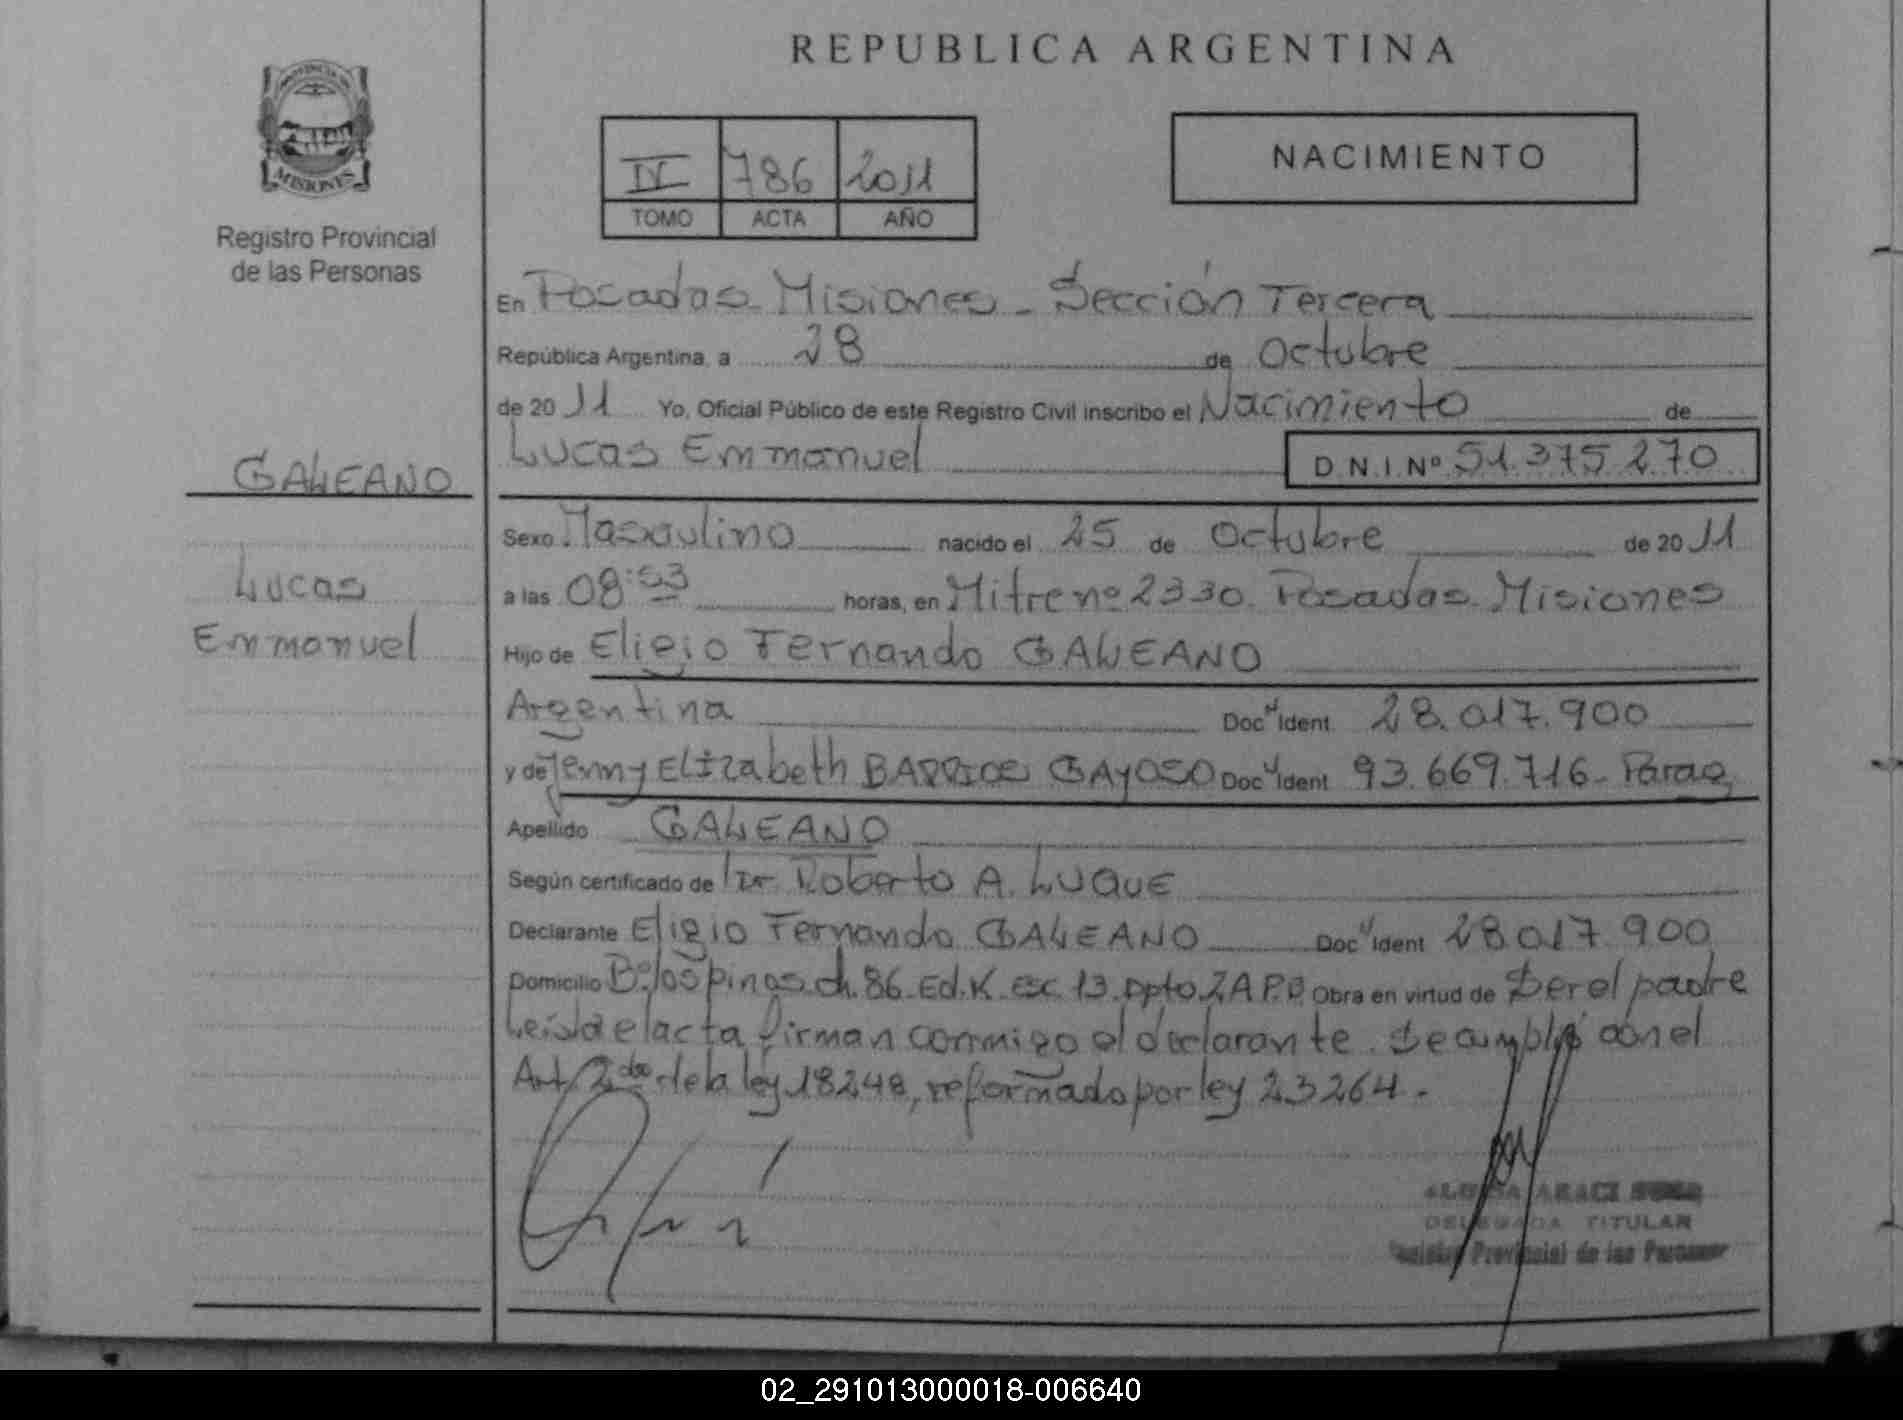 REPUBLICA ARGENTINA
PROVINCIA DE
MISIONES
Registro Provincial
de las Personas
IV 786 2011
TOMO ACTA AÑO
NACIMIENTO
En Posadas - Misiones - Sección Tercera
República Argentina, a 28 de Octubre
de 2011 Yo, Oficial Público de este Registro Civil inscribo el Nacimiento de
Lucas Emmanuel D.N.I.Nº 51.375.270
GALEANO
Lucas
Emmanuel
Sexo Masculino nacido el 25 de Octubre de 2011
a las 08:53 horas, en Mitre nº 2330. Posadas. Misiones
Hijo de Eligio Fernando GALEANO
Argentina Doc. Ident. 28.017.900
y de Jenny Elizabeth BARRIOS GAYOSO Doc. Ident. 93.669.716 - Parag
Apellido GALEANO
Según certificado de Dr. Roberto A. LUQUE
Declarante Eligio Fernando GALEANO Doc. Ident 28.017.900
Domicilio Bº los Pinos ch. 86 Ed. K esc. 13 Dpto 2 A P.B Obra en virtud de Ser el padre
Leída el acta firman conmigo el declarante. Se cumplió con el
Art 2do de la ley 18248, reformado por ley 23264.-
ARACI
DELEGADA TITULAR
Registro Provincial de las Personas
02_291013000018-006640